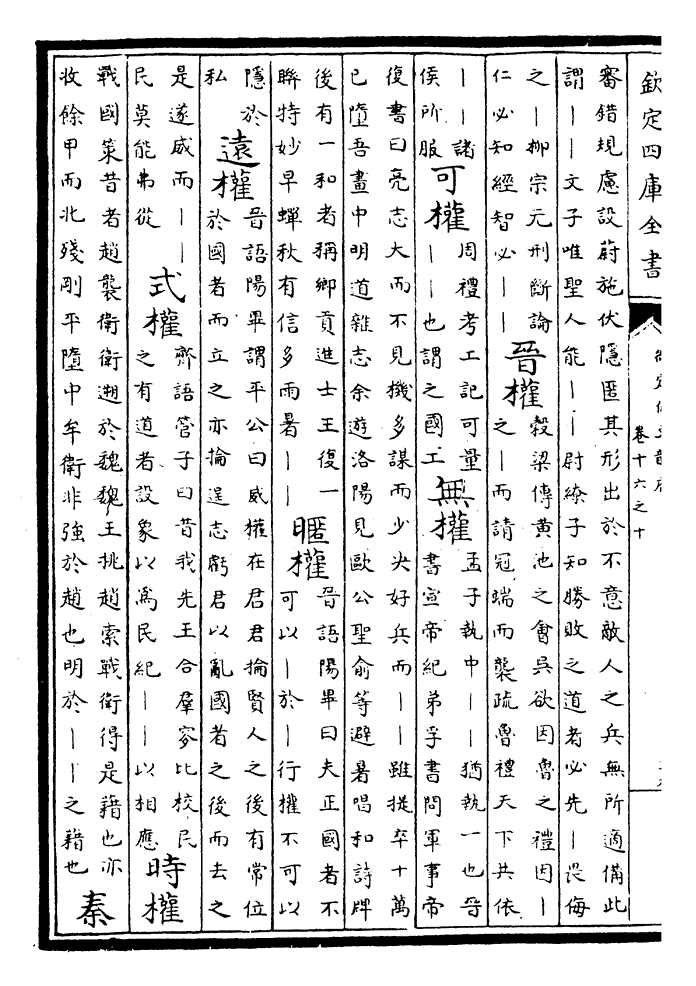 欽定四庫全書
卷十六之十
審錯規慮設蔚施伏隱匿其形出於不意敵人之兵無所適備此
謂||文子唯聖人能||尉繚子知勝敗之道者必先|畏侮
之|柳宗元刑斷論
仁必知經智必||
晉權
榖梁傳黃池之會吳欲因魯之禮因|
之|而請冠端而襲疏魯禮天下共依
||諸
侯所服
可權
周禮考工記可量
||也謂之國工
無權
孟子執中||猶執一也晉
書宣帝紀弟孚書問軍事帝
復書曰亮志大而不見機多謀而少決好兵而||雖提卒十萬
已墮吾畫中明道雜志余遊洛陽見歐公聖俞等避暑唱和詩牌
後有一和者稱鄉貢進士王復一
聯特妙早蟬秋有信多雨暑||
暱權
晉語陽畢曰夫正國者不
可以|於|行權不可以
隱於
私
遠權
晉語陽畢謂平公曰威權在君君掄賢人之後有常位
於國者而立之亦掄逞志虧君以亂國者之後而去之
是遂威而||
民莫能弗從
式權
齊語管子曰昔我先王合羣叜比校民
之有道者設象以為民紀||以相應
時權
戰國策昔者趙襲衛衛遡於魏魏王挑趙索戰衛得是藉也亦
收餘甲而北殘剛平隳中牟衛非強於趙也明於||之藉也
秦